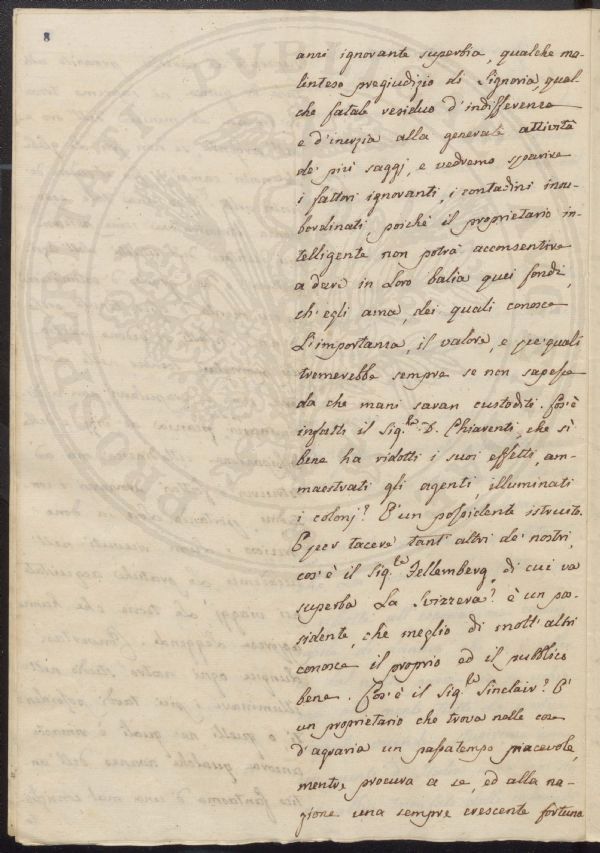 8
anzi ignorante superbia, qualche ma-
linteso pregiudizio di Signoria, qual-
che fatale residuo d'indifferenza
e d'inerzia alla generale attività
de' più saggj, e vedremo sparire
i fattori ignoranti, i contadini insu-
bordinati, poichè il proprietario in-
telligente non potrà acconsentire
a dare in Loro balia quei fondi,
ch'egli ama, dei quali conosce
L'importanza, il valore, e pe' quali
tremerebbe sempre se non sapesse
da che mani saran custoditi. Cos'è
infatti il Sig.re D. Chiarenti, che sì
bene ha ridotti i suoi effetti, am-
maestrati gli agenti, illuminati
i colonj? È un possidente istruito.
E per tacere tant'altri de' nostri,
cos'è il Sig.re Fellemberg, di cui va
superba La Svizzera? è un pos-
sidente, che meglio di molt'altri
conosce il proprio ed il pubblico
bene. Cos'è il Sig.re Sinclair? È
un proprietario che trova nelle cose
d'agraria un passatempo piacevole,
mentre procura a se, ed alla na-
zione una sempre crescente fortuna